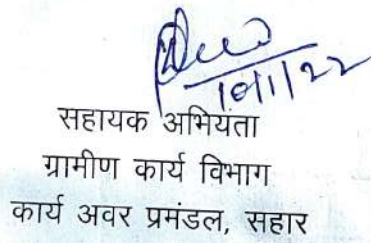 सहायक अभियंता
ग्रामीण कार्य विभाग
कार्य अवर प्रमंडल, सहार